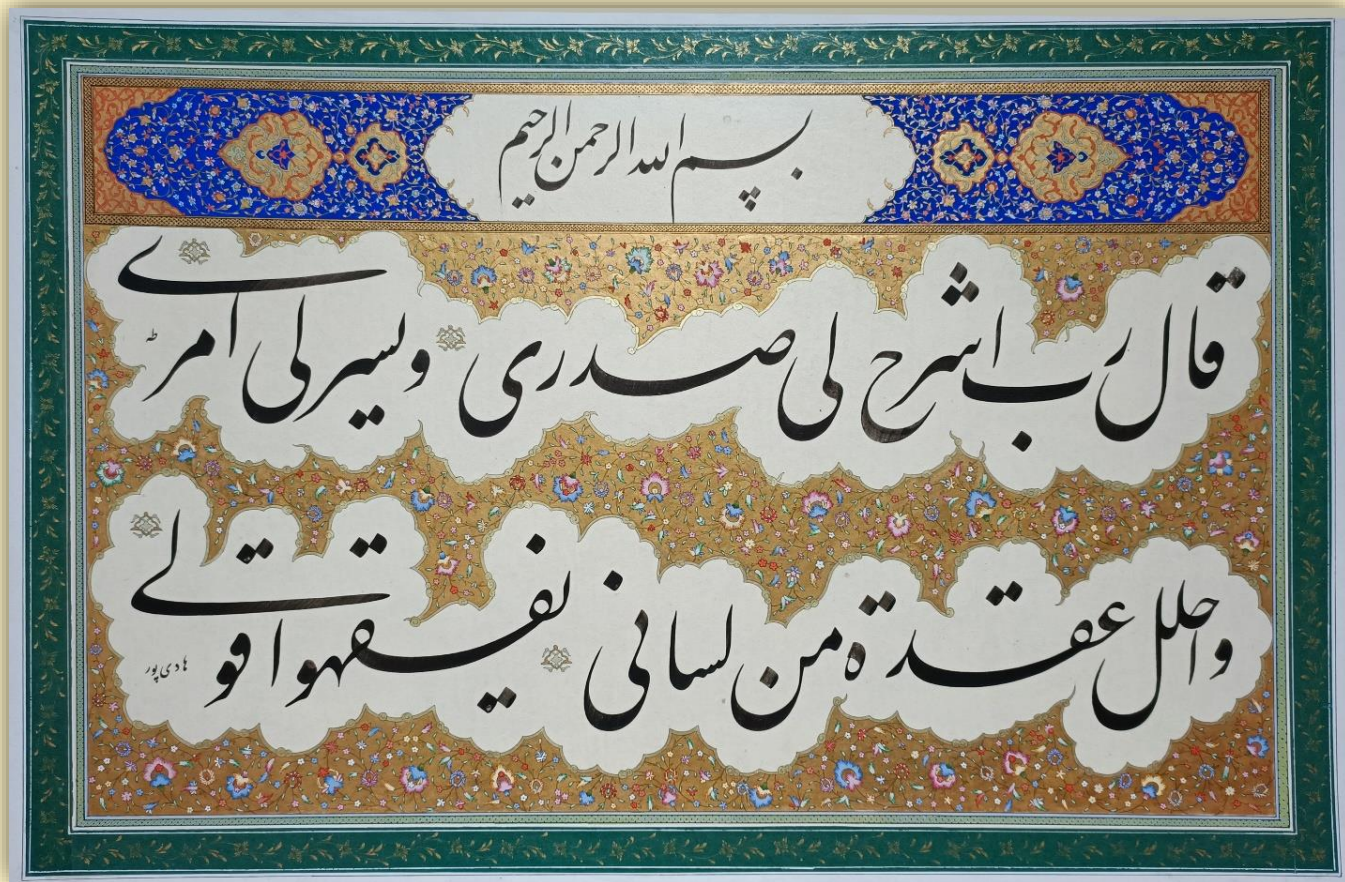 بسم الله الرحمن الرحیم
قال رب اشرح لی صدری ویسر لی امری
واحلل عقدة من لسانی یفقهوا قولی
هادی پور